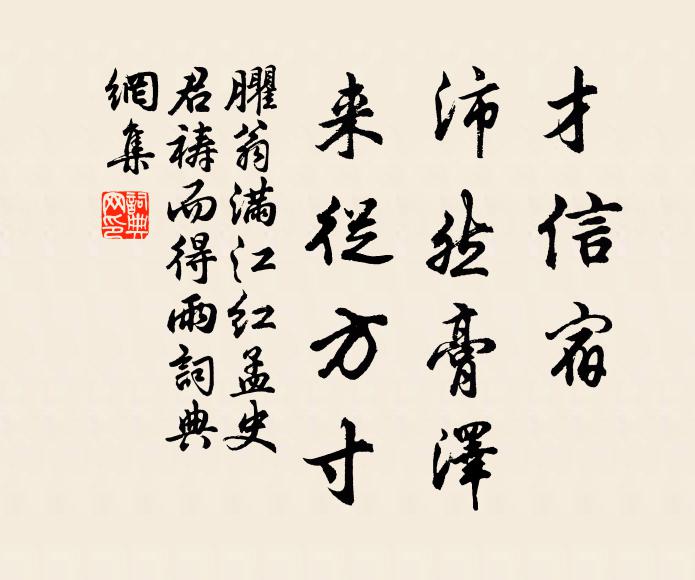 才信宿
沛然膏澤
来從方寸
臞翁滿江红孟史
君祷而得雨詞典
網集
詞典網印